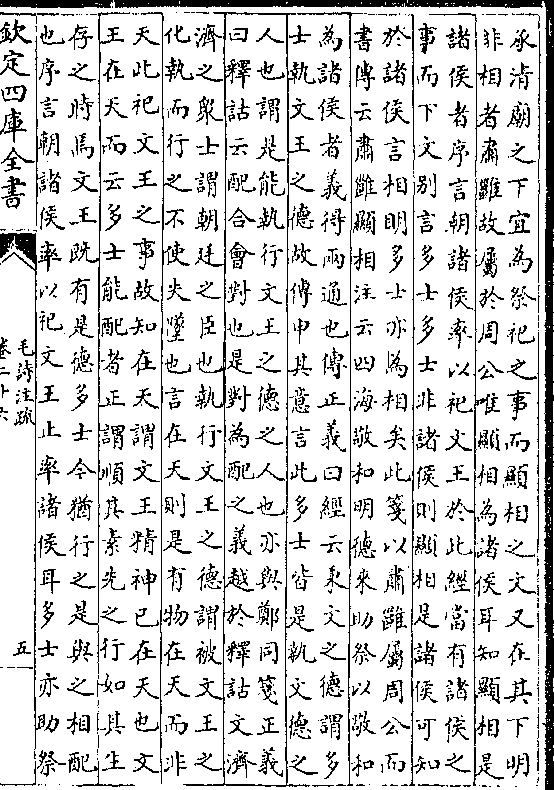 承清廟之下宜為祭祀之事而顯相之文又在其下明
非相者肅雝故屬於周公唯顯相為諸侯耳知顯相是
諸侯者序言朝諸侯率以祀文王於此經當有諸侯之
事而下文别言多士多士非諸侯則顯相是諸侯可知
於諸侯言相明多士亦為相矣此箋以肅雝屬周公而
書傳云肅雝顯相注云四海敬和明德來助祭以敬和
為諸侯者義得兩通也傳正義曰經云秉文之德謂多
士執文王之德故傳申其意言此多士皆是執文德之
人也謂是能執行文王之德之人也亦與鄭同箋正義
曰釋詁云配合會對也是對為配之義越於釋詁文濟
濟之衆士謂朝廷之臣也執行文王之德謂被文王之
化執而行之不使失墜也言在天則是有物在天而非
天此祀文王之事故知在天謂文王精神已在天也文
王在天而云多士能配者正謂順其素先之行如其生
存之時焉文王既有是德多士今猶行之是與之相配
也序言朝諸侯率以祀文王止率諸侯耳多士亦助祭
欽定四庫全書
毛詩注疏
卷二十六
五